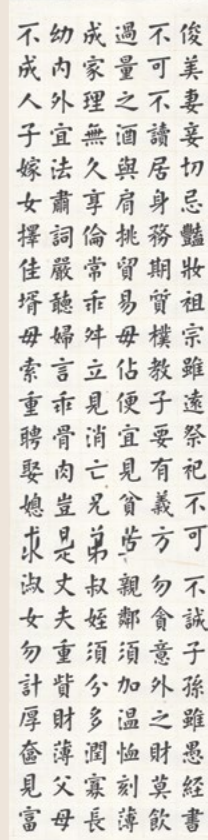 俊美妻妾切忌豔妝祖宗雖遠祭祀不可不誠子孫雖愚經書
不可不讀居身務期質樸教子要有義方勿貪意外之財莫飲
過量之酒與肩挑貿易毋佔便宜見貧苦親鄰須加温恤刻薄
成家理無久享倫常乖舛立見消亡兄弟叔姪須分多潤寡長
幼內外宜法肅詞嚴聽婦言乖骨肉豈是丈夫重貲財薄父母
不成人子嫁女擇佳壻毋索重聘娶媳求淑女勿計厚奩見富